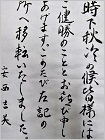 時下秋冷の候皆様には
ご健勝のこととお慶び申し
あげます。このたび左記の
所へ移転いたしました。
安西吉美